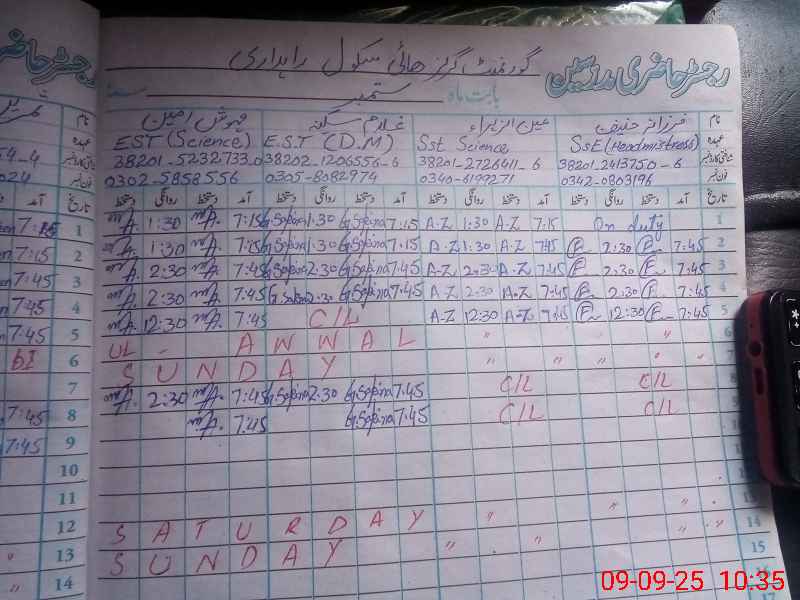 رجسٹر حاضری مدرسین گورنمنٹ گرلز ہائی سکول راہداری
بابت ماہ ستمبر سنہ
نام فرزانہ حنیف عین الزہراء غلام سکینہ مہوش رامین
عہدہ SSE (Headmistress) Sst Science E.S.T (D.M) EST (Science)
شناختی کارڈ نمبر 38201-2413750-6 38201-2726411-6 38202-1206556-6 38201-5232733-0
فون نمبر 0342-0803196 0340-6199271 0305-8082974 0302-5858556
تاریخ آمد دستخط روانگی دستخط آمد دستخط روانگی دستخط آمد دستخط روانگی دستخط آمد دستخط روانگی دستخط
1 On duty 7:15 A-Z 1:30 A-Z 7:15 G.Sakina 1:30 G.Sakina 7:15 1:30
2 7:45 2:30 7:45 A-Z 1:30 A-Z 7:15 G.Sakina 1:30 G.Sakina 7:15 1:30
3 7:45 2:30 7:45 A-Z 2:30 A-Z 7:45 G.Sakina 2:30 G.Sakina 7:45 2:30
4 7:45 2:30 7:45 A-Z 2:30 A-Z 7:45 G.Sakina 2:30 G.Sakina 7:45 2:30
5 7:45 12:30 7:45 A-Z 12:30 A-Z C/L 7:45 12:30
6 UL - AWWAL " " " "
7 SUNDAY " " " "
8 C/L C/L 7:45 G.Sakina 2:30 G.Sakina 7:45 2:30
9 C/L C/L 7:45 G.Sakina 7:45
13 SATURDAY " " "
14 SUNDAY " " " "
15
16
17
رجسٹر حاضر
نام
عہدہ
شناختی کارڈ نمبر
فون نمبر
تاریخ آمد
1 7:15
2 7:15
3 7:45
4 7:45
5 7:45
6
7
8 7:45
9 7:45
10
11
12
13 "
14 "
09-09-25 10:35